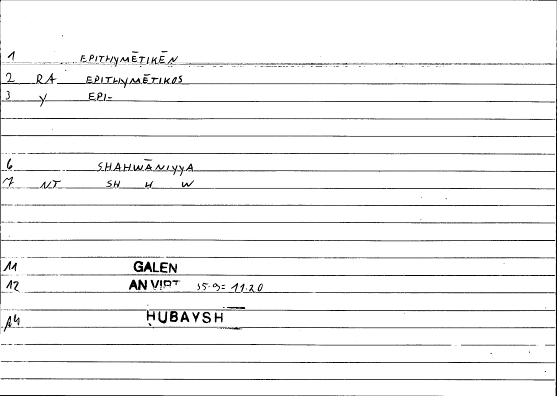 1 EPITHYMĒTIKĒN
2 RA EPITHYMĒTIKOS
3 y EPI-
6 SHAHWĀNIYYA
7 NT SH H W
11 GALEN
12 AN VIRT 35.9= 11.20
14 ḤUBAYSH